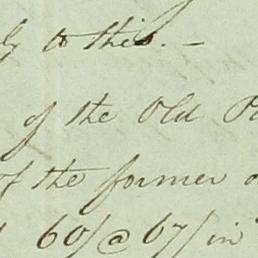 ly to this. –
of the Old
of the former
60/ @ 67/ in